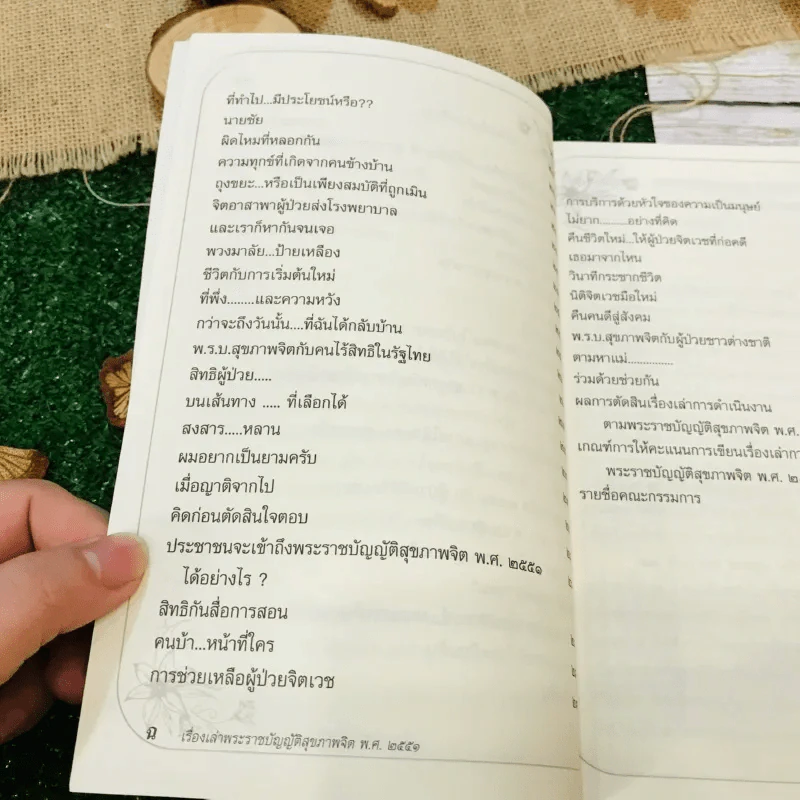 ที่ทำไป...มีประโยชน์หรือ??
นายชัย
ผิดไหมที่หลอกกัน
ความทุกข์ที่เกิดจากคนข้างบ้าน
ถุงขยะ...หรือเป็นเพียงสมบัติที่ถูกเมิน
จิตอาสาพาผู้ป่วยส่งโรงพยาบาล
และเราก็หากันจนเจอ
พวงมาลัย...ป้ายเหลือง
ชีวิตกับการเริ่มต้นใหม่
ที่พึ่ง........และความหวัง
กว่าจะถึงวันนั้น....ที่ฉันได้กลับบ้าน
พ.ร.บ.สุขภาพจิตกับคนไร้สิทธิในรัฐไทย
สิทธิผู้ป่วย.....
บนเส้นทาง ..... ที่เลือกได้
สงสาร.....หลาน
ผมอยากเป็นยามครับ
เมื่อญาติจากไป
คิดก่อนตัดสินใจตอบ
ประชาชนจะเข้าถึงพระราชบัญญัติสุขภาพจิต พ.ศ. ๒๕๕๑
ได้อย่างไร ?
สิทธิกันสื่อการสอน
คนบ้า...หน้าที่ใคร
การช่วยเหลือผู้ป่วยจิตเวช
ฉ เรื่องเล่าพระราชบัญญัติสุขภาพจิต พ.ศ. ๒๕๕๑
การบริการด้วยหัวใจของความเป็นมนุษย์
ไม่ยาก.........อย่างที่คิด
คืนชีวิตใหม่...ให้ผู้ป่วยจิตเวชที่ก่อคดี
เธอมาจากไหน
วินาทีกระชากชีวิต
นิติจิตเวชมือใหม่
คืนคนดีสู่สังคม
พ.ร.บ.สุขภาพจิตกับผู้ป่วยชาวต่างชาติ
ตามหาแม่..............
ร่วมด้วยช่วยกัน
ผลการตัดสินเรื่องเล่าการดำเนินงาน
ตามพระราชบัญญัติสุขภาพจิต พ.ศ.
เกณฑ์การให้คะแนนการเขียนเรื่องเล่า
พระราชบัญญัติสุขภาพจิต พ.ศ. ๒
รายชื่อคณะกรรมการ